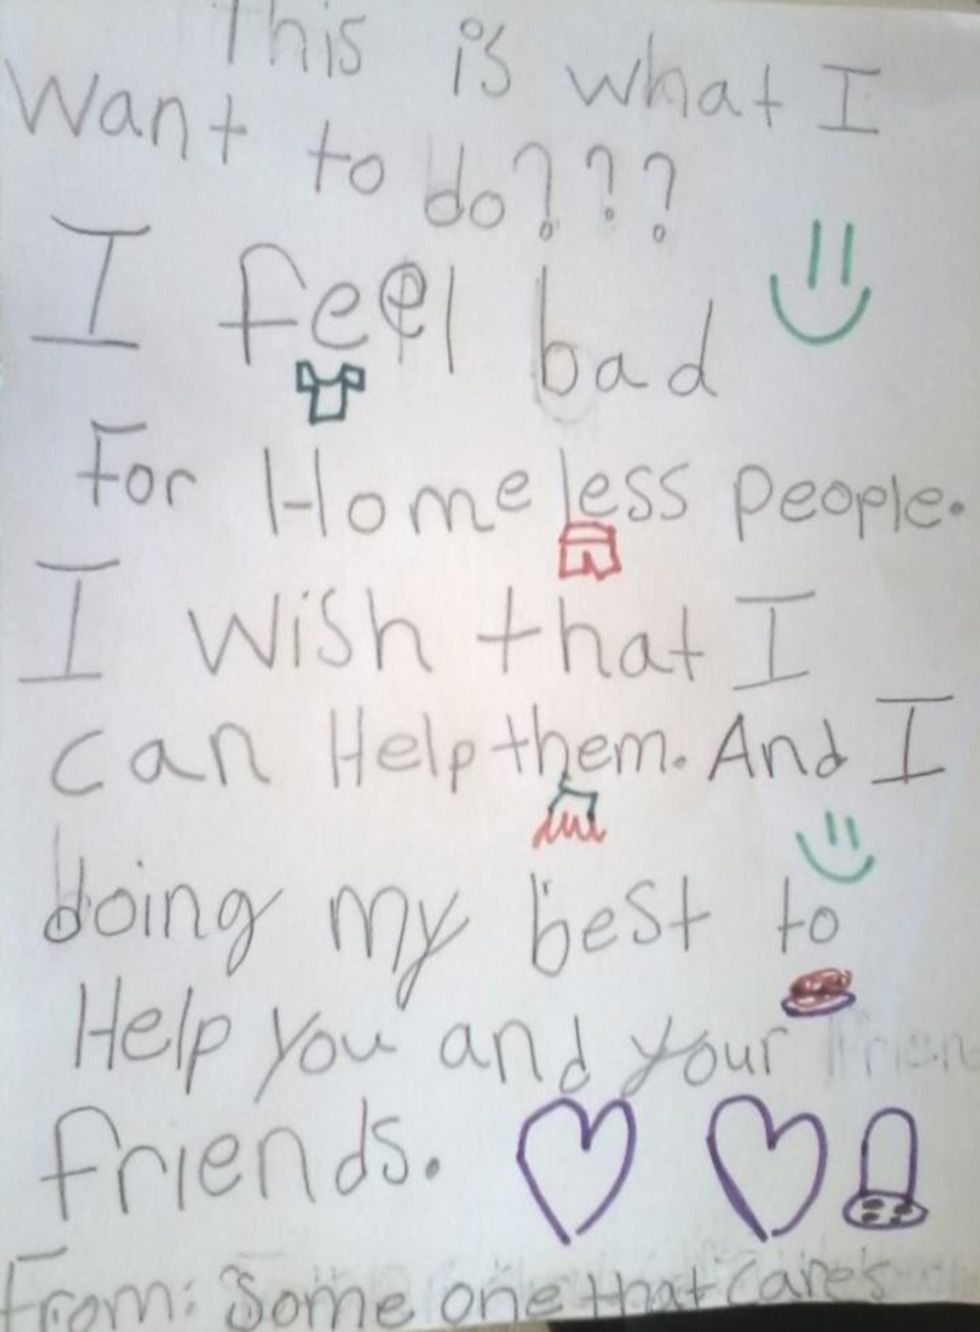 This is what I
want to do???
I feel bad
For Homeless people.
I wish that I
can Help them. And I
doing my best to
Help you and your frien
friends.
From: Some one that cares